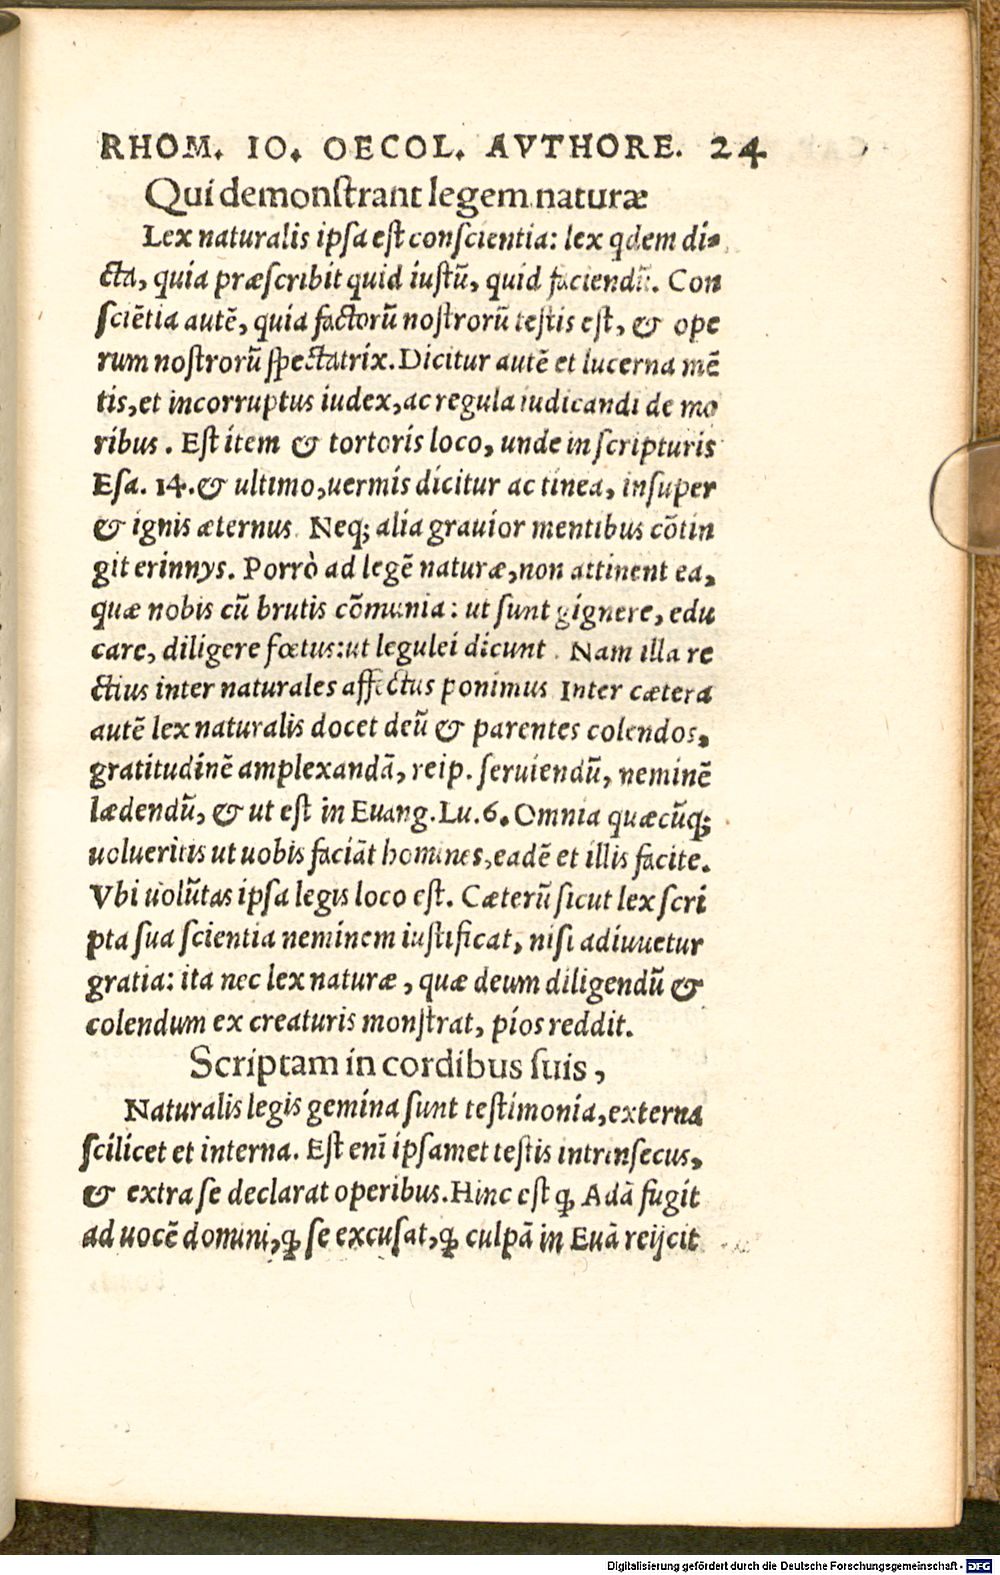 RHOM. IO. OECOL. AVTHORE. 24
Qui demonſtrant legem naturæ
Lex naturalis ipſa eſt conſcientia: lex qdem di-
cta, quia præſcribit quid iuſtū, quid faciendū. Con
ſciētia autē, quia factorū noſtrorū teſtis eſt, & ope
rum noſtrorū ſpectatrix. Dicitur autē et lucerna mē
tis, et incorruptus iudex, ac regula iudicandi de mo
ribus. Eſt item & tortoris loco, unde in ſcripturis
Eſa. 14. & ultimo, uermis dicitur ac tinea, inſuper
& ignis æternus. Neq; alia grauior mentibus cōtin
git erinnys. Porrò ad legē naturæ, non attinent ea,
quæ nobis cū brutis cōmunia: ut ſunt gignere, edu
care, diligere fœtus: ut legulei dicunt. Nam illa re
ctius inter naturales affectus ponimus Inter cætera
autē lex naturalis docet deū & parentes colendos,
gratitudinē amplexandā, reip. ſeruiendū, neminē
lædendū, & ut eſt in Euang. Lu. 6. Omnia quæcūq;
uolueritis ut uobis faciāt homines, eadē et illis facite.
Vbi uolūtas ipſa legis loco eſt. Cæterū ſicut lex ſcri
pta ſua ſcientia neminem iuſtificat, niſi adiuuetur
gratia: ita nec lex naturæ, quæ deum diligendū &
colendum ex creaturis monſtrat, pios reddit.
Scriptam in cordibus ſuis,
Naturalis legis gemina ſunt teſtimonia, externa
ſcilicet et interna. Eſt enī ipſamet teſtis intrinſecus,
& extra ſe declarat operibus. Hinc eſt ꝙ Adā fugit
ad uocē domini, ꝙ ſe excuſat, ꝙ culpā in Euā reijcit
Digitalisierung gefördert durch die Deutsche Forschungsgemeinschaft - DFG